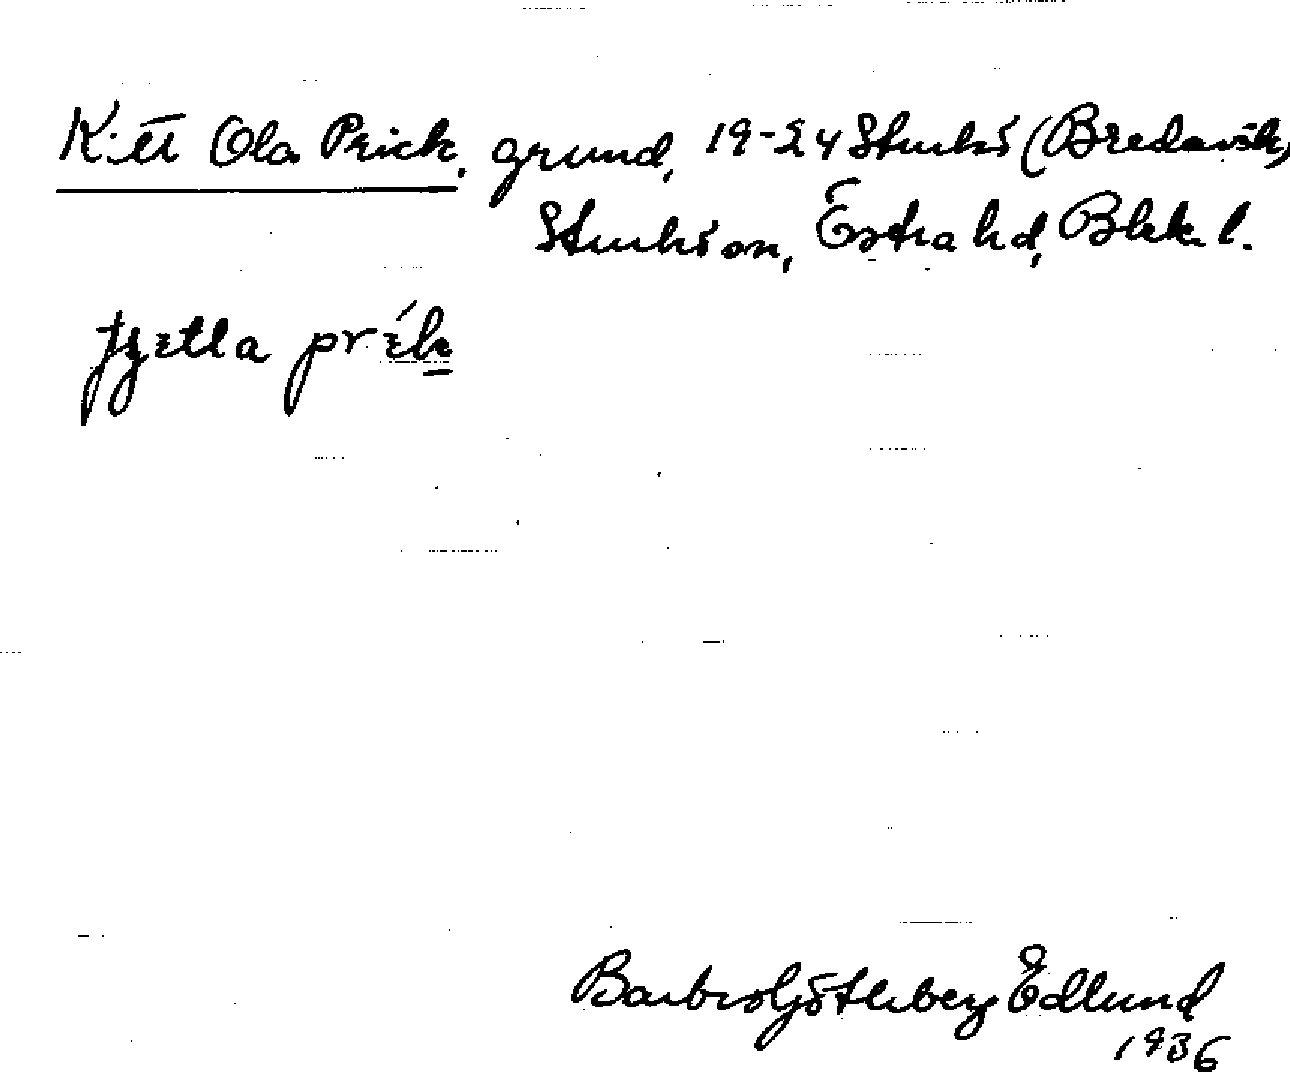 Ola Prick, grund, 19-24 Sturkö (Bredavik,
Sturkö sn, Östra hd, Blek. l.
Barbro Götherberg Edlund
1936